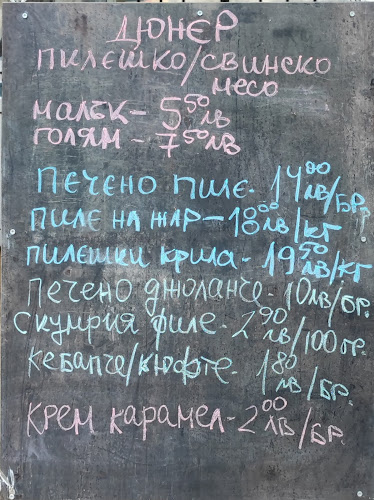 ДЮНЕР
ПИЛЕШКО/СВИНСКО
МЕСО
МАЛЪК - 5 50 ЛВ
ГОЛЯМ - 7 50 ЛВ
ПЕЧЕНО ПИЛЕ - 14 00 ЛВ/БР.
ПИЛЕ НА ЖАР - 18 00 ЛВ/КГ
ПИЛЕШКИ КРИЛА - 19 50 ЛВ/КГ
ПЕЧЕНО ДЖОЛАНЧЕ - 10 ЛВ/БР.
СКУМРИЯ ФИЛЕ - 2 90 ЛВ/100 ГР.
КЕБАПЧЕ/КЮФТЕ - 1 80 ЛВ/БР.
КРЕМ КАРАМЕЛ - 2 00 ЛВ/БР.